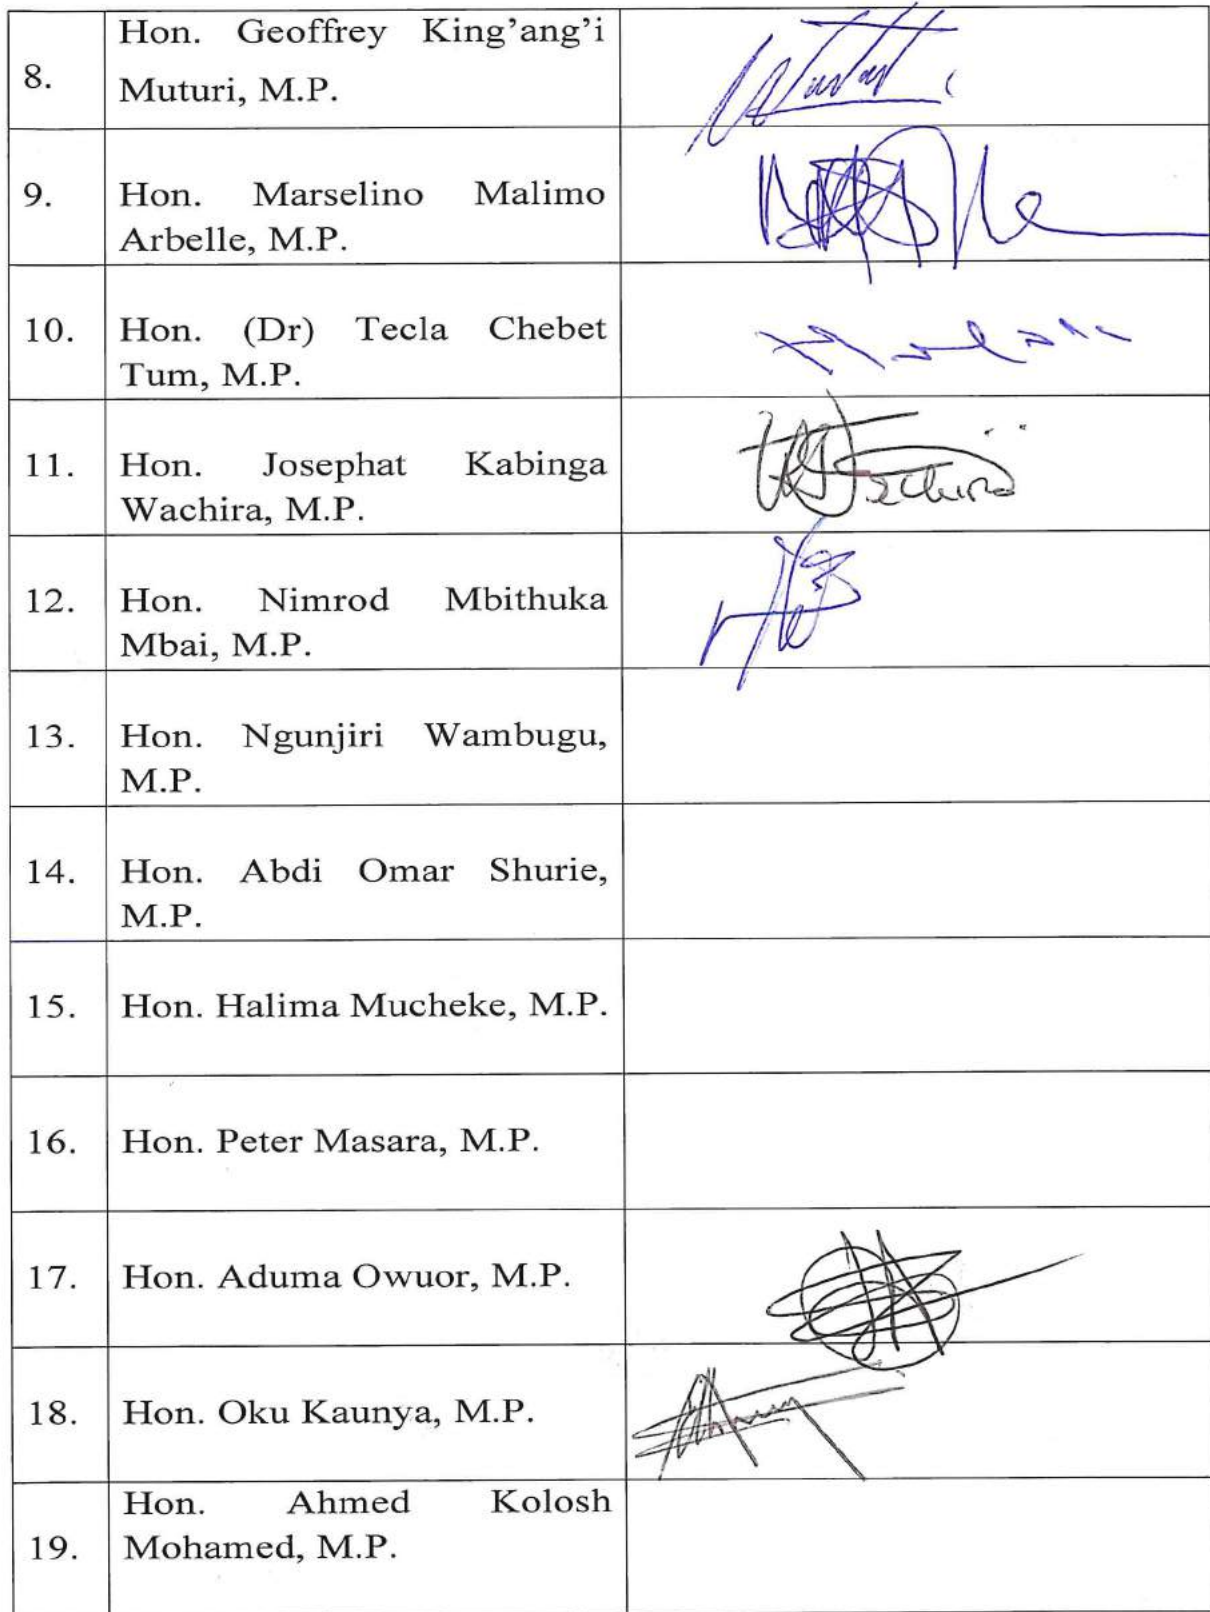 8.
Hon. Geoffrey King'ang'i
Muturi, M.P.
9.
Hon. Marselino Malimo
Arbelle, M.P.
10.
Hon. (Dr) Tecla Chebet
Tum, M.P.
11.
Hon. Josephat Kabinga
Wachira, M.P.
12.
Hon. Nimrod Mbithuka
Mbai, M.P.
13.
Hon. Ngunjiri Wambugu,
M.P.
14.
Hon. Abdi Omar Shurie,
M.P.
15.
Hon. Halima Mucheke, M.P.
16.
Hon. Peter Masara, M.P.
17.
Hon. Aduma Owuor, M.P.
18.
Hon. Oku Kaunya, M.P.
19.
Hon. Ahmed Kolosh
Mohamed, M.P.